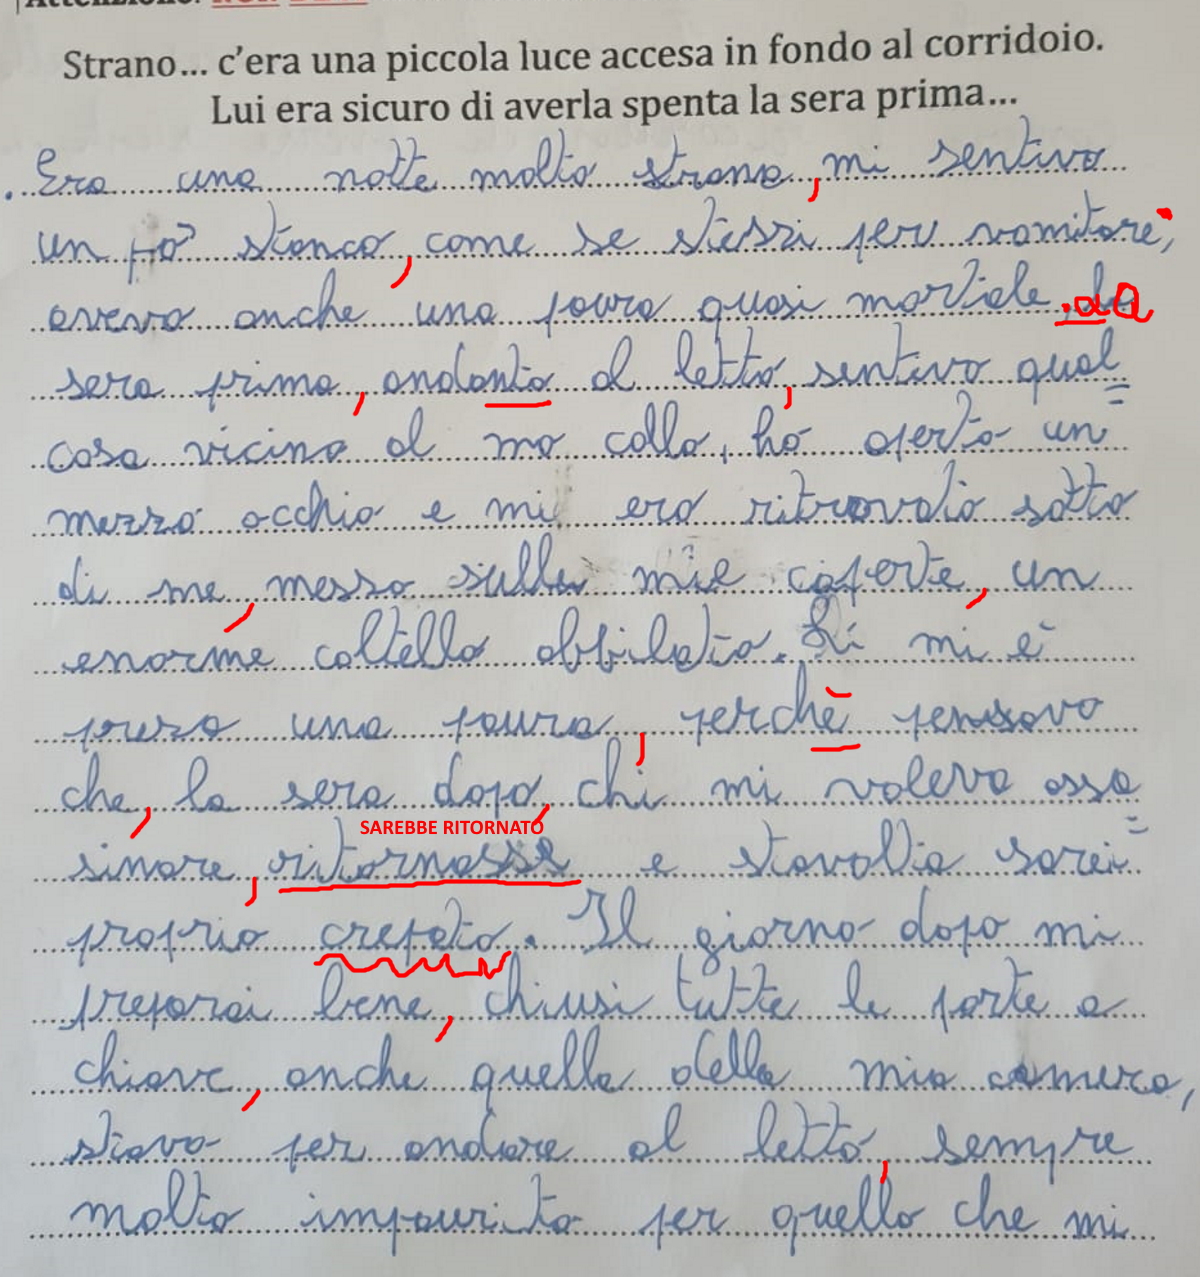 Strano... c'era una piccola luce accesa in fondo al corridoio.
Lui era sicuro di averla spenta la sera prima...
Era una notte molto strana, mi sentivo
un po' stanco, come se stessi per vomitare;
avevo anche una paura quasi mortale. da
sera prima, andanto al letto, sentivo qual=
cosa vicino al mo collo, ho aperto un
mezzo occhio e mi ero ritrovato sotto
di me, messo sulle mie coperte, un
enorme coltello affilato. Lì mi è
preso una paura, perchè pensavo
che, la sera dopo, chi mi voleva assa=
SAREBBE RITORNATO
sinare, ritornasse e stavolta sarei
proprio crepato. Il giorno dopo mi
preparai bene, chiusi tutte le porte a
chiave, anche quella della mia camera,
stavo per andare al letto, sempre
molto impaurito per quello che mi